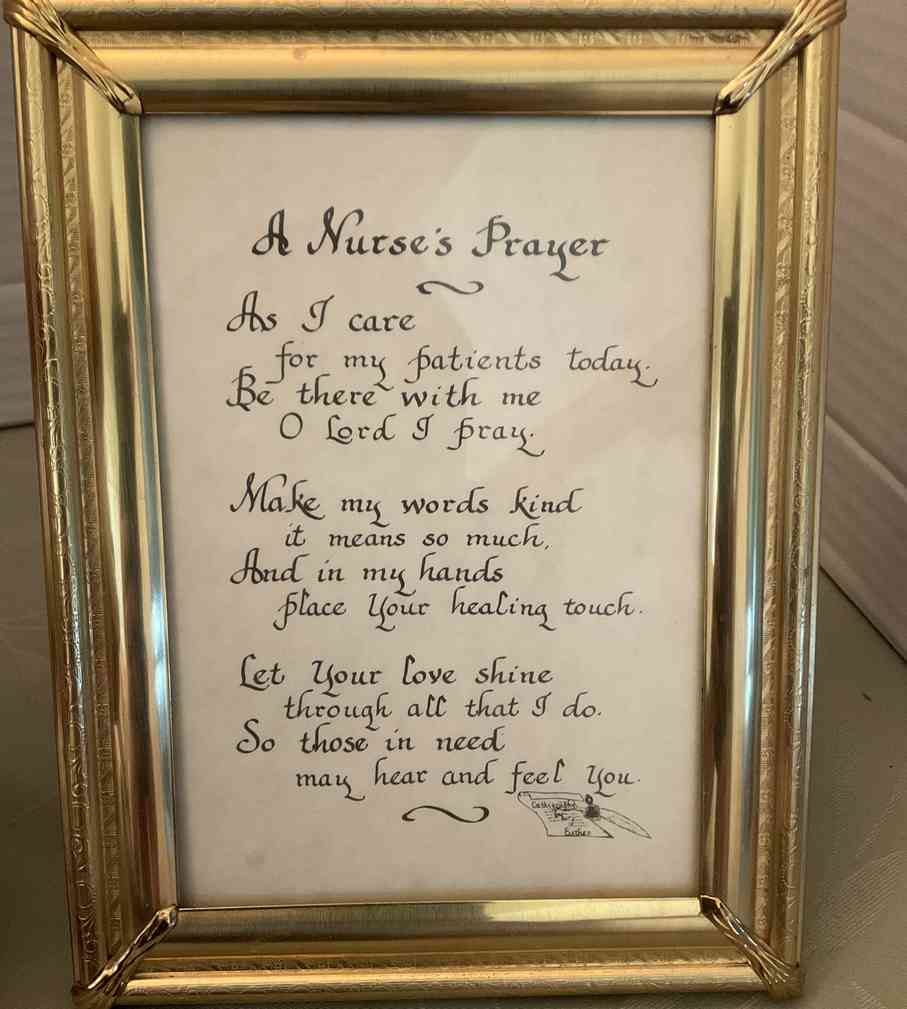 A Nurse's Prayer
As I care
for my patients today.
Be there with me
O Lord I pray.
Make my words kind
it means so much,
And in my hands
place Your healing touch.
Let Your love shine
through all that I do.
So those in need
may hear and feel You.
by
Esther